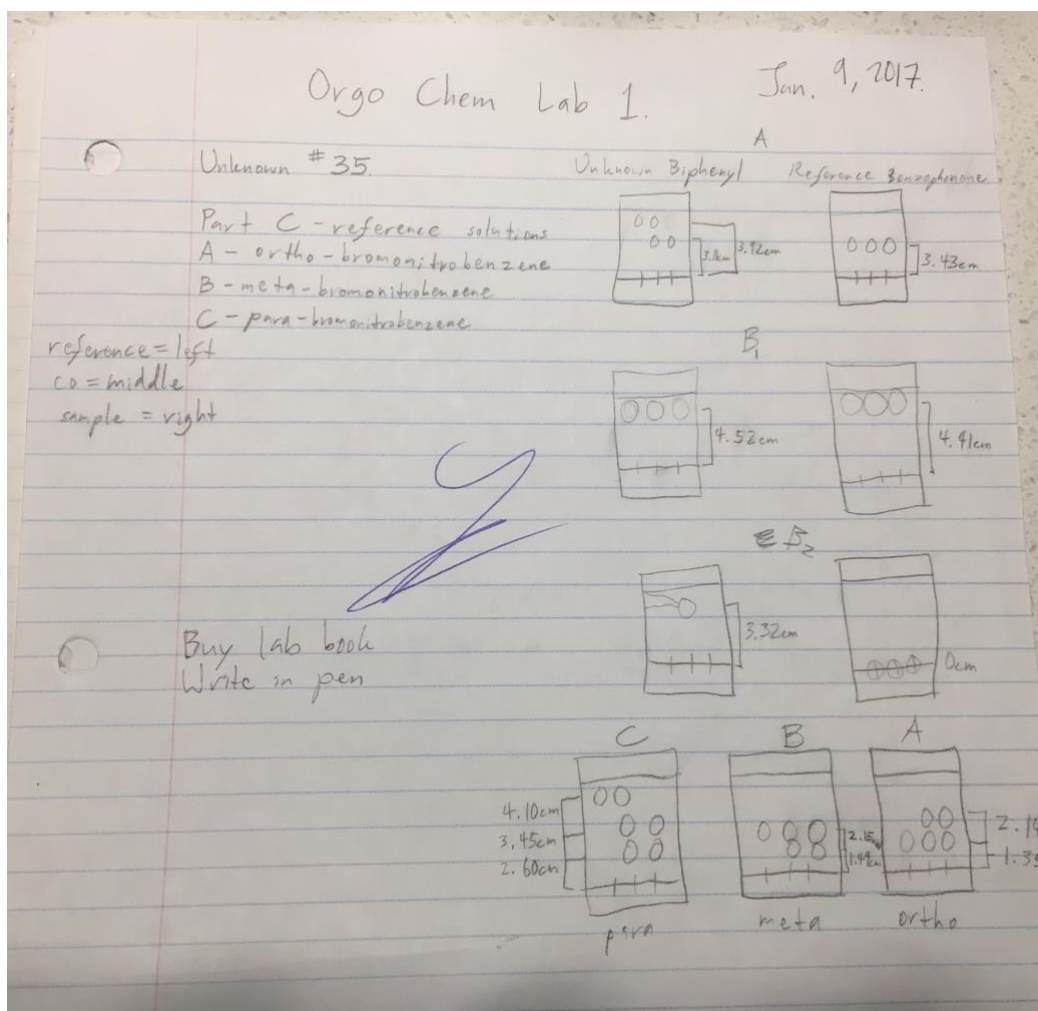 Orgo Chem Lab 1.
Jan. 9, 2017.
Unknown #35.
Part C - reference solutions
A - ortho-bromonitrobenzene
B - meta-bromonitrobenzene
C - para-bromonitrobenzene
reference = left
co = middle
sample = right
Buy lab book
Write in pen
A
Unknown Biphenyl
Reference Benzophenone
3.92cm
3.43cm
B1
4.52cm
4.41cm
B2
3.32cm
0cm
C
4.10cm
3.45cm
2.60cm
para
B
2.15
1.49cm
meta
A
2.14
1.35
ortho